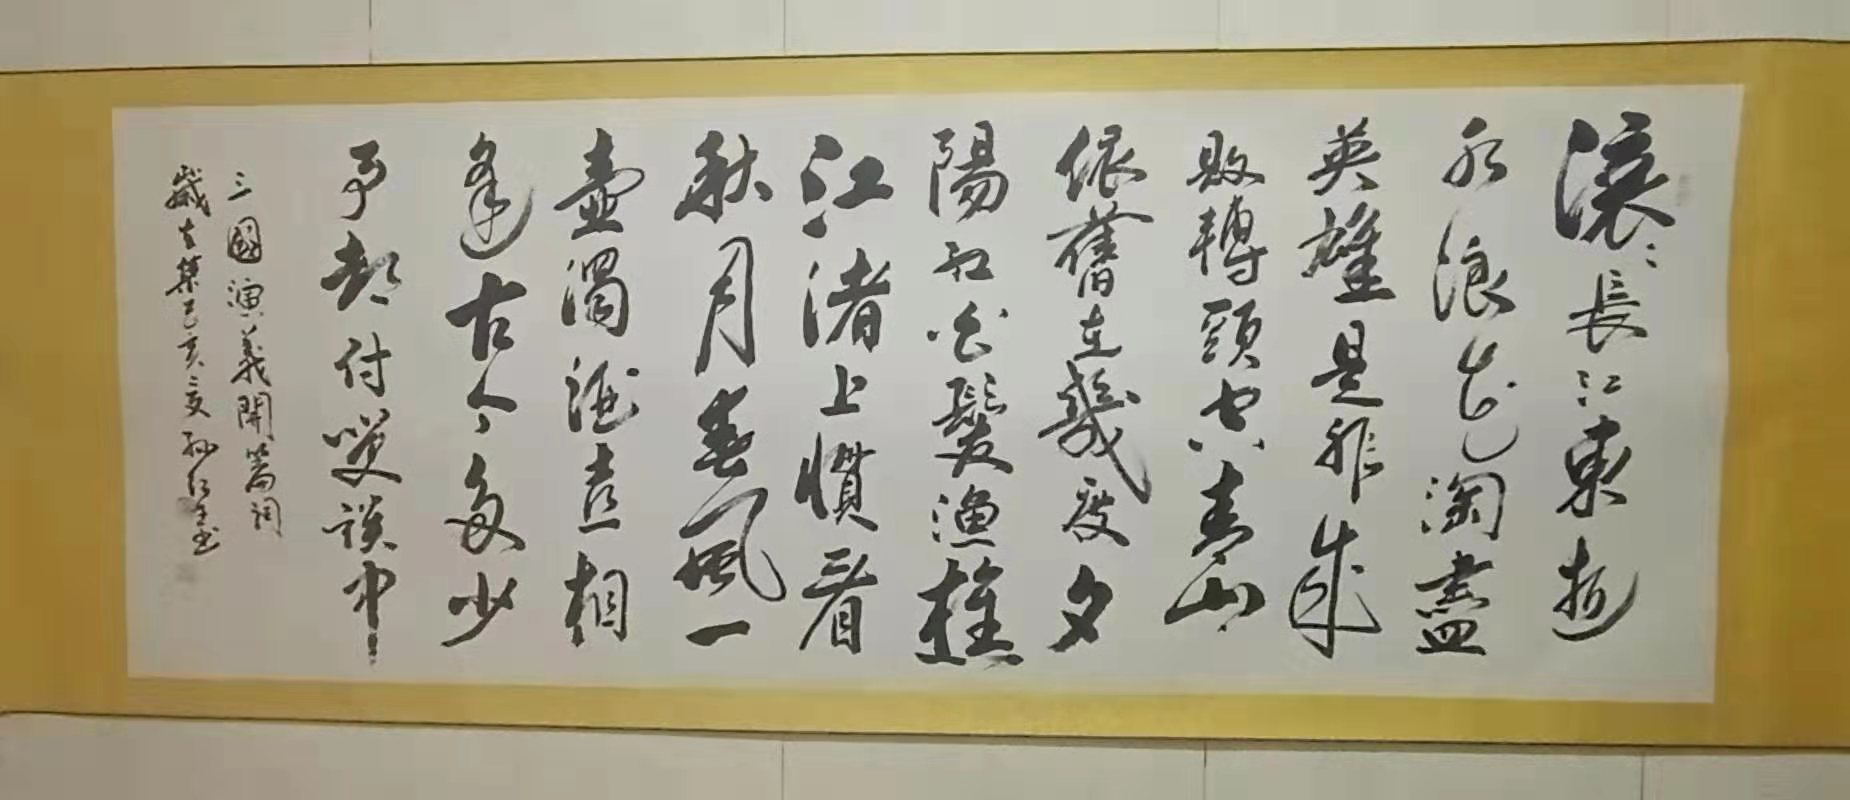 滾〻長江東逝
水浪花淘盡
英雄是非成
敗轉頭空青山
依舊在幾度夕
陽紅白髮漁樵
江渚上慣看
秋月春風一
壺濁酒喜相
逢古今多少
事都付笑談中
三國演義開篇詞
歲在己亥之夏孫書